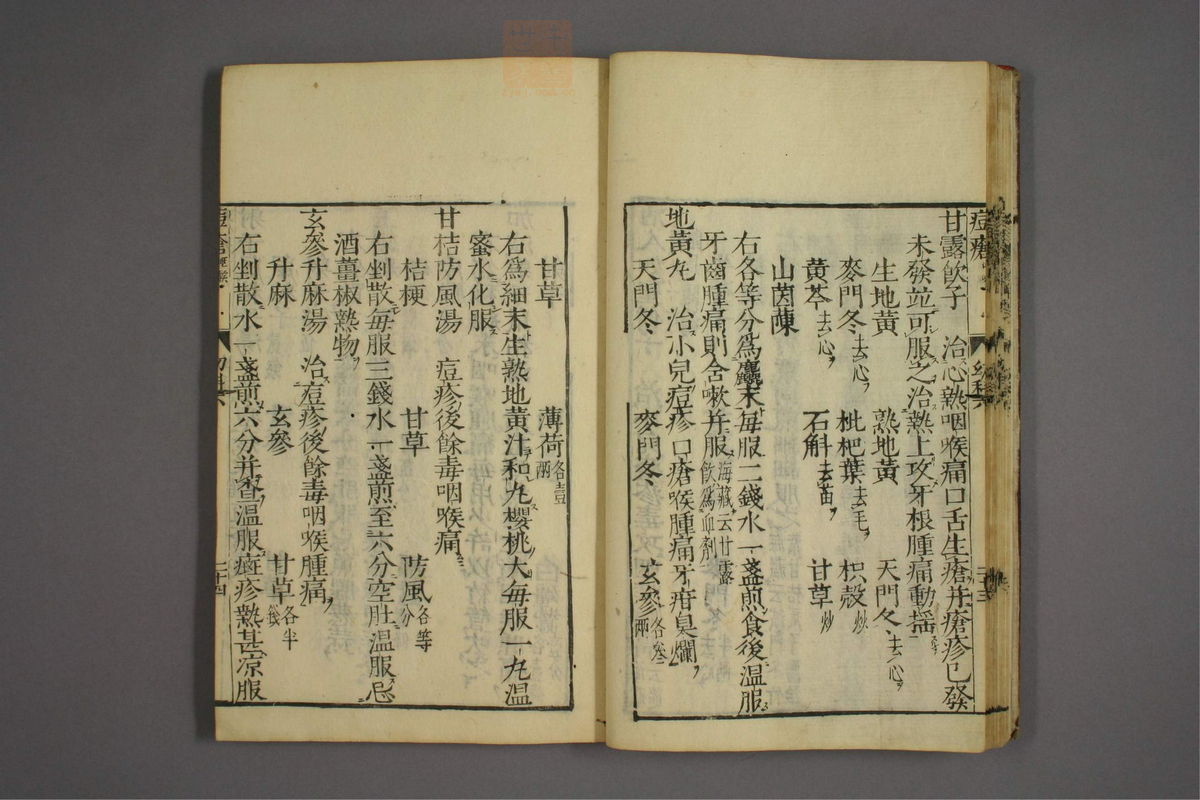 甘露飲子　治心熱咽喉痛口舌生瘡并瘡疹已發
未發並可服之治熱上攻牙根腫痛動搖
生地黃　熟地黃　天門冬去心
麥門冬去心　枇杷葉去毛　枳殻炒
黃芩去心　石斛去苗　甘草炒
山茵蔯
右各等分爲麤末每服二錢水一盞煎食後温服
牙齒腫痛則含嗽并服海藏云甘露飲爲血劑
地黃丸　治小兒痘疹口瘡喉腫痛牙疳臭爛
天門冬　麥門冬　玄參各叁兩
甘草　薄荷各壹兩
右爲細末生熟地黃汁和丸櫻桃大每服一丸温
蜜水化服
甘桔防風湯　痘疹後餘毒咽喉痛
桔梗　甘草　防風各等分
右剉散每服三錢水一盞煎至六分空肚温服忌
酒薑椒熱物
玄參升麻湯　治痘疹後餘毒咽喉腫痛
升麻　玄參　甘草各半錢
右剉散水一盞煎六分并㾕温服㿀疹熱甚凉服
幼科六
二十四